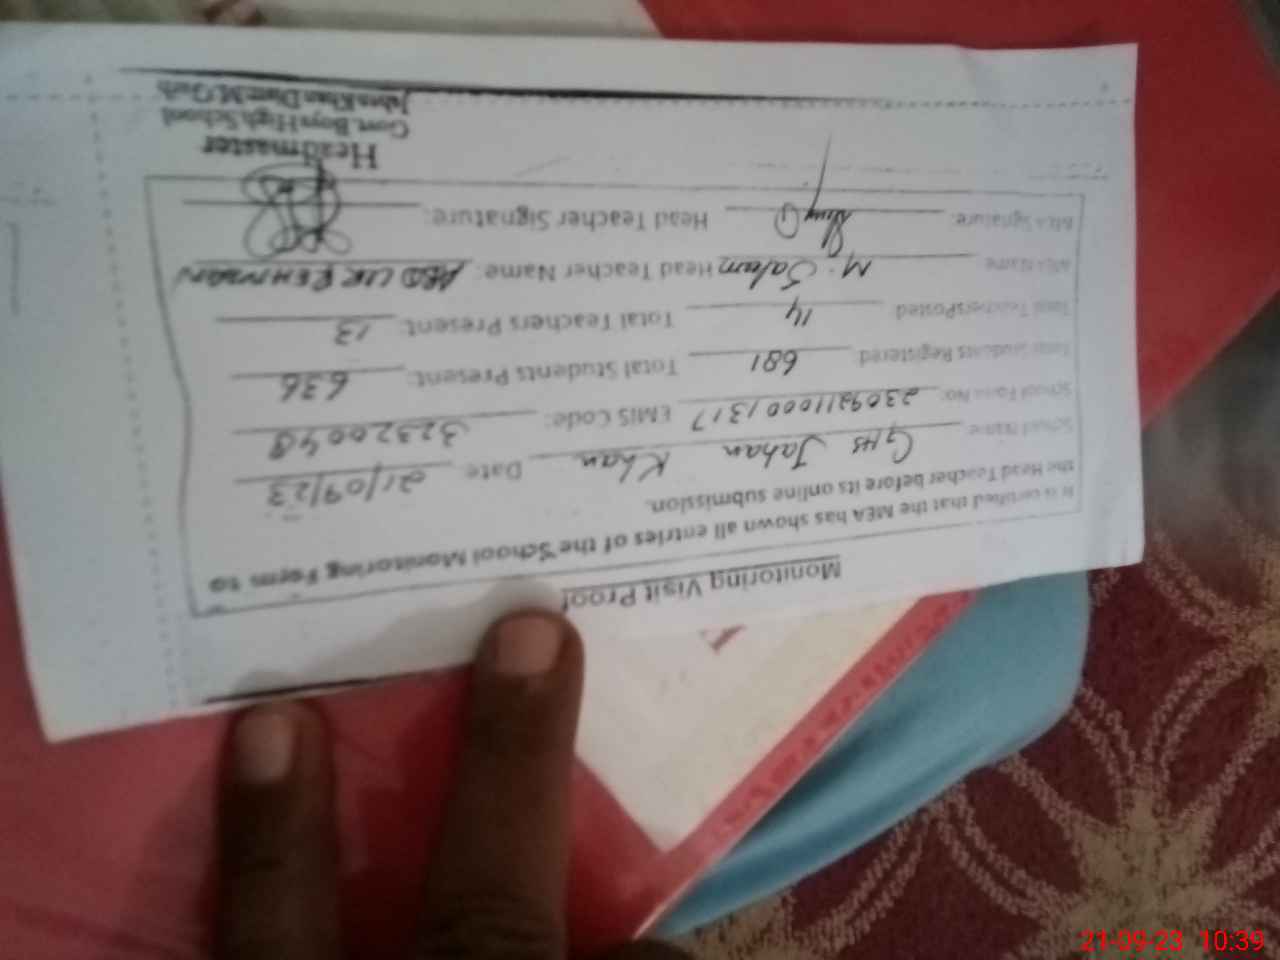 Monitoring Visit Proof
It is certified that the MEA has shown all entries of the School Monitoring Form to
the Head Teacher before its online submission.
School Name: GHS Jahan Khan Date 21/09/23
School Form No: 23092110001317 EMIS Code: 32320048
Total Students Registered 681 Total Students Present: 636
Total TeachersPosted 14 Total Teachers Present: 13
MEA Name M. Salam Head Teacher Name: ABD UR REHMAN
MEA Signature: Head Teacher Signature:
Headmaster
Govt. Boys High School
Jahan Khan Distt: M/Garh
21-09-23 10:39